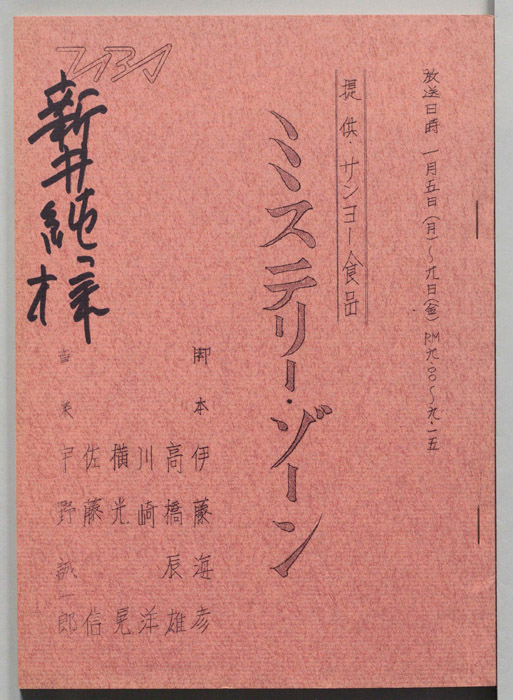 放送日時 一月五日(月)〜九日(金) PM九・00〜九・一五
提供・サンヨー食品
ミステリー・ゾーン
脚本 伊藤海彦
高橋辰雄
川崎洋
横光晃
佐藤信
音楽 戸野誠一郎
新井純様
TBS